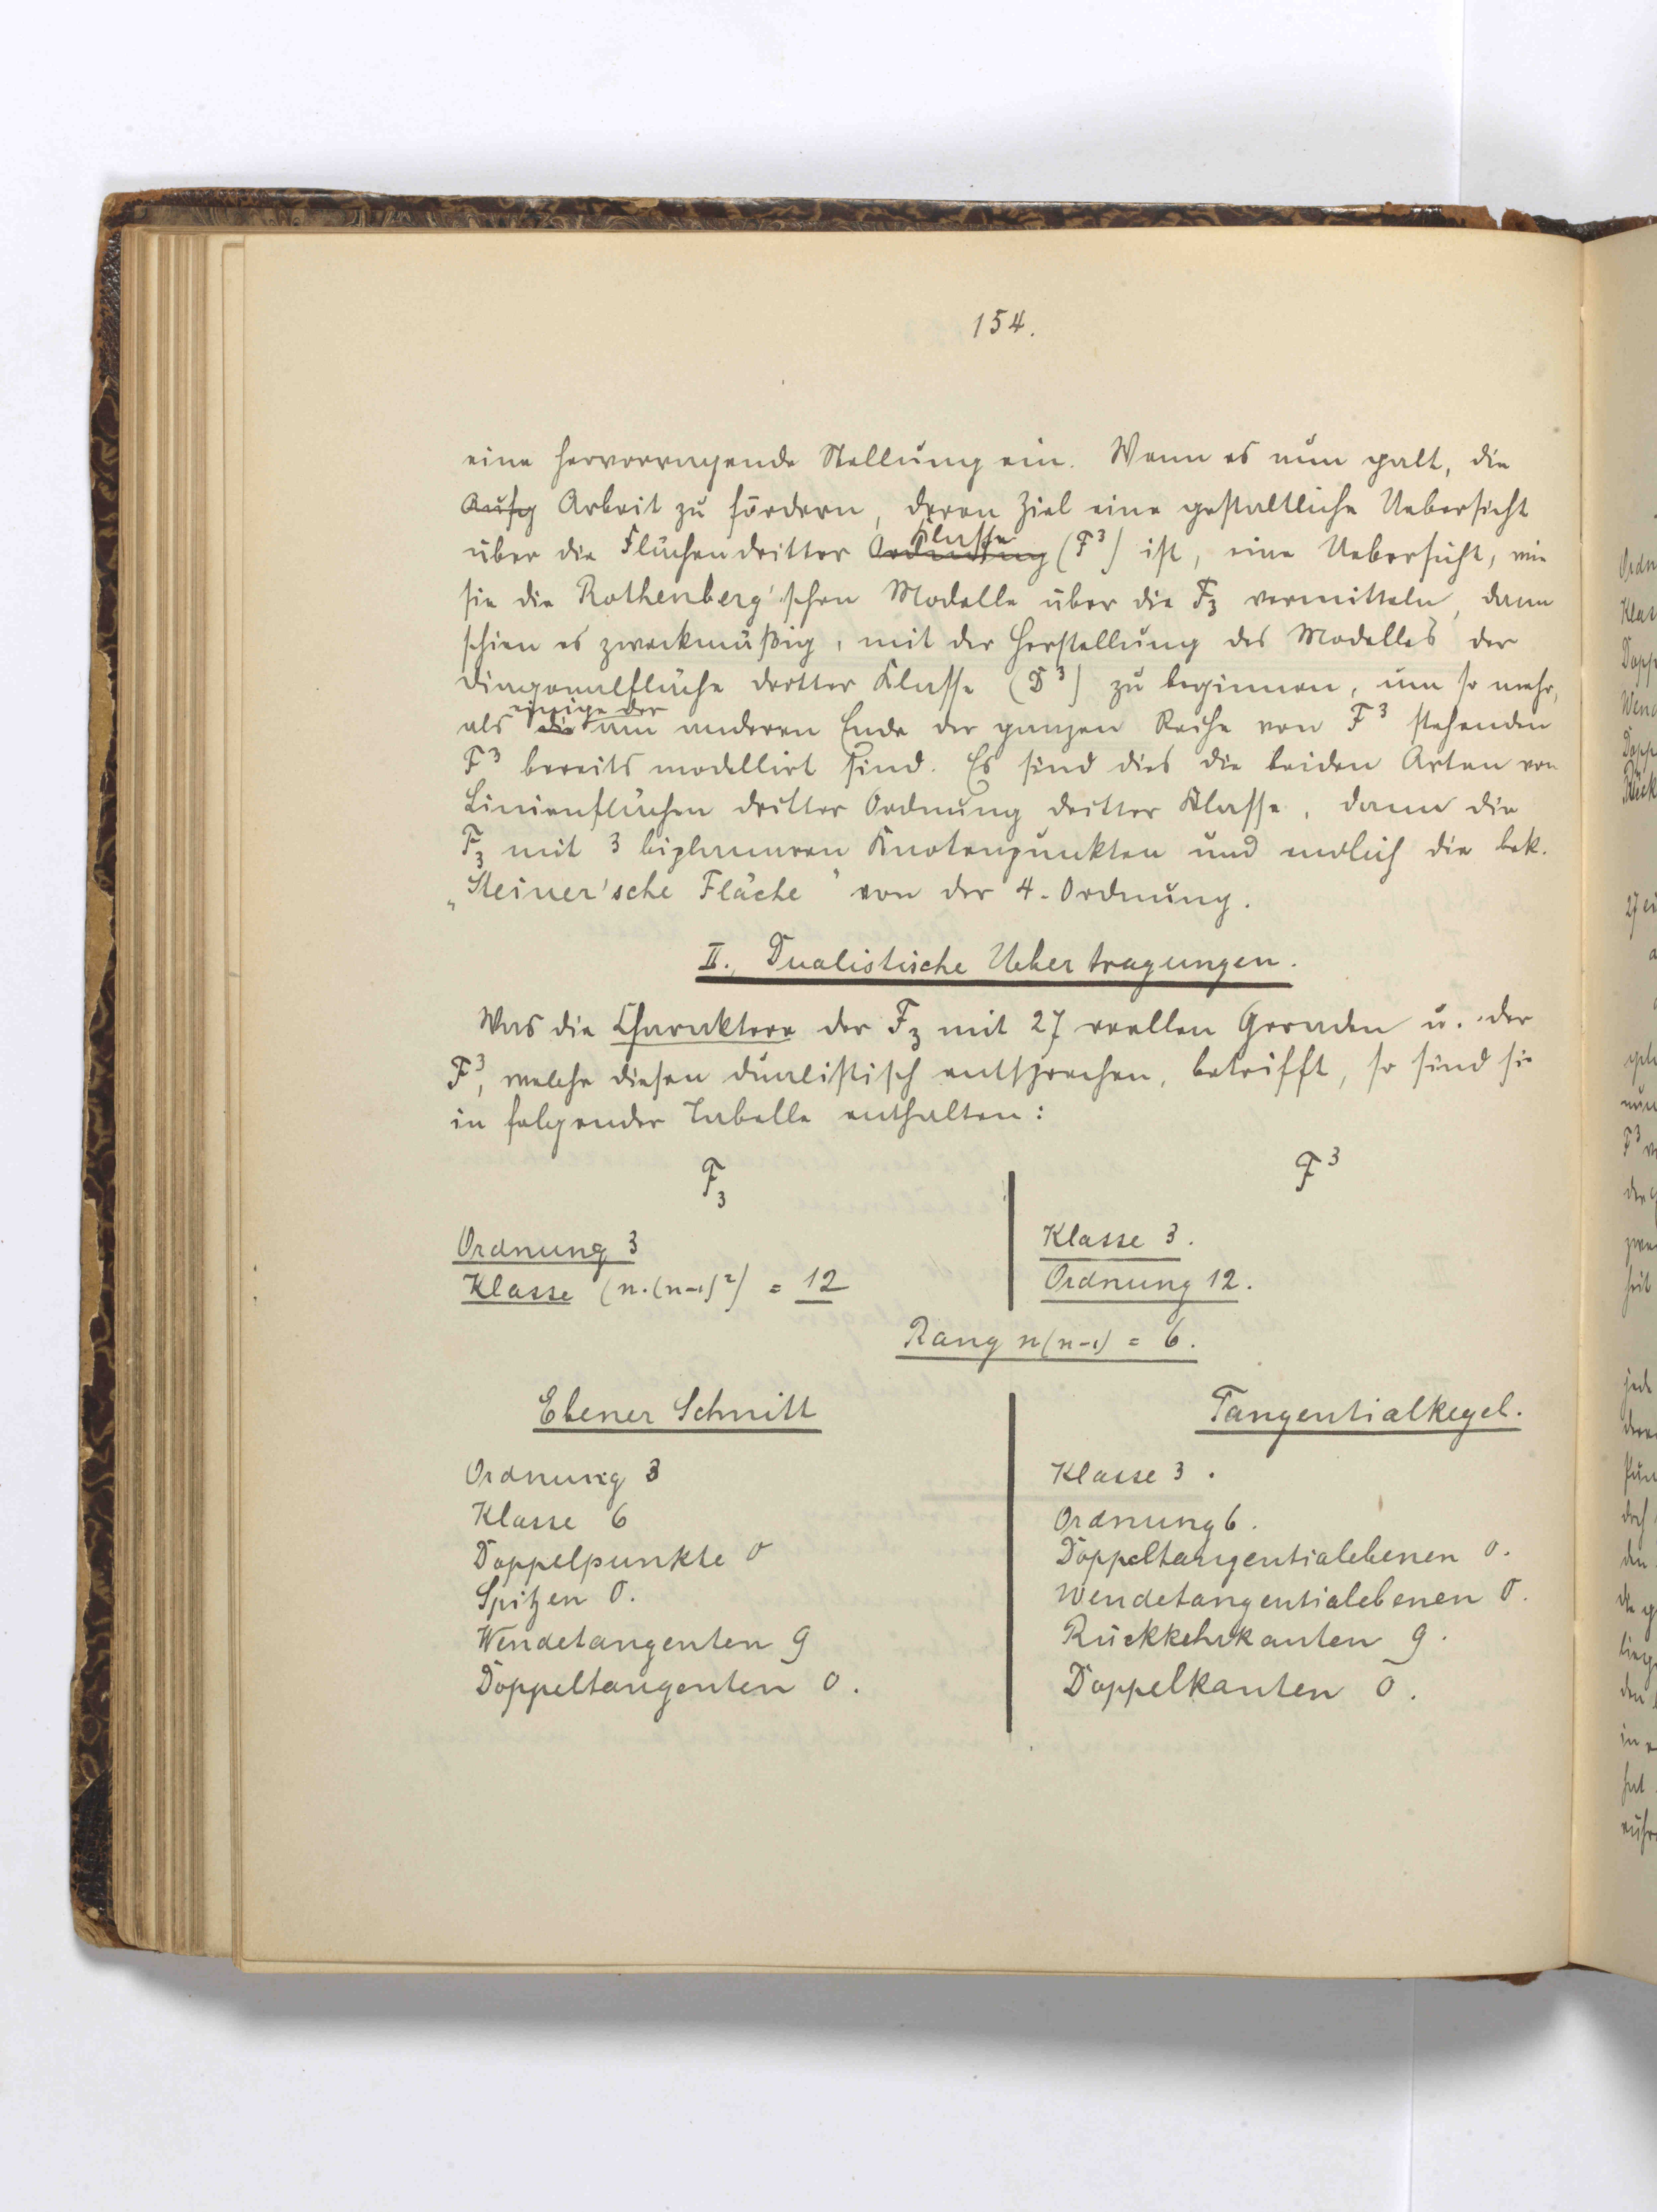 154.
eine hervorragende Stellung ein. Wenn es nun galt, die
Aufg Arbeit zu fördern, deren Ziel eine gestaltliche Uebersicht
über die Flächen dritter Ordnung Klasse (F³) ist, eine Uebersicht, wie
sie die Rothenberg'schen Modelle über die F₃ vermitteln, dann
schien es zweckmäßig, mit der Herstellung des Modelles der
Diagonalfläche dritter Klasse (D³) zu beginnen, um so mehr,
als die einige der am anderen Ende der ganzen Reihe von F³ stehenden
F³ bereits modellirt sind. Es sind dies die beiden Arten von
Linienflächen dritter Ordnung dritter Klasse, dann die
F₃ mit 3 biplanaren Knotenpunkten und endlich die bek.
„Steiner'sche Fläche" von der 4. Ordnung.
II., Dualistische Uebertragungen.
Was die Charaktere der F₃ mit 27 reellen Geraden u. der
F³, welche diesen dualistisch entsprechen, betrifft, so sind sie
in folgender Tabelle enthalten:
F₃ F³
Ordnung 3 Klasse 3.
Klasse (n.(n-1)²) = 12 Ordnung 12.
Rang n(n-1) = 6.
Ebener Schnitt Tangentialkegel.
Ordnung 3 Klasse 3.
Klasse 6 Ordnung 6.
Doppelpunkte 0 Doppeltangentialebenen 0.
Spitzen 0. Wendetangentialebenen 0.
Wendetangenten 9 Rückkehrkanten 9.
Doppeltangenten 0. Doppelkanten 0.